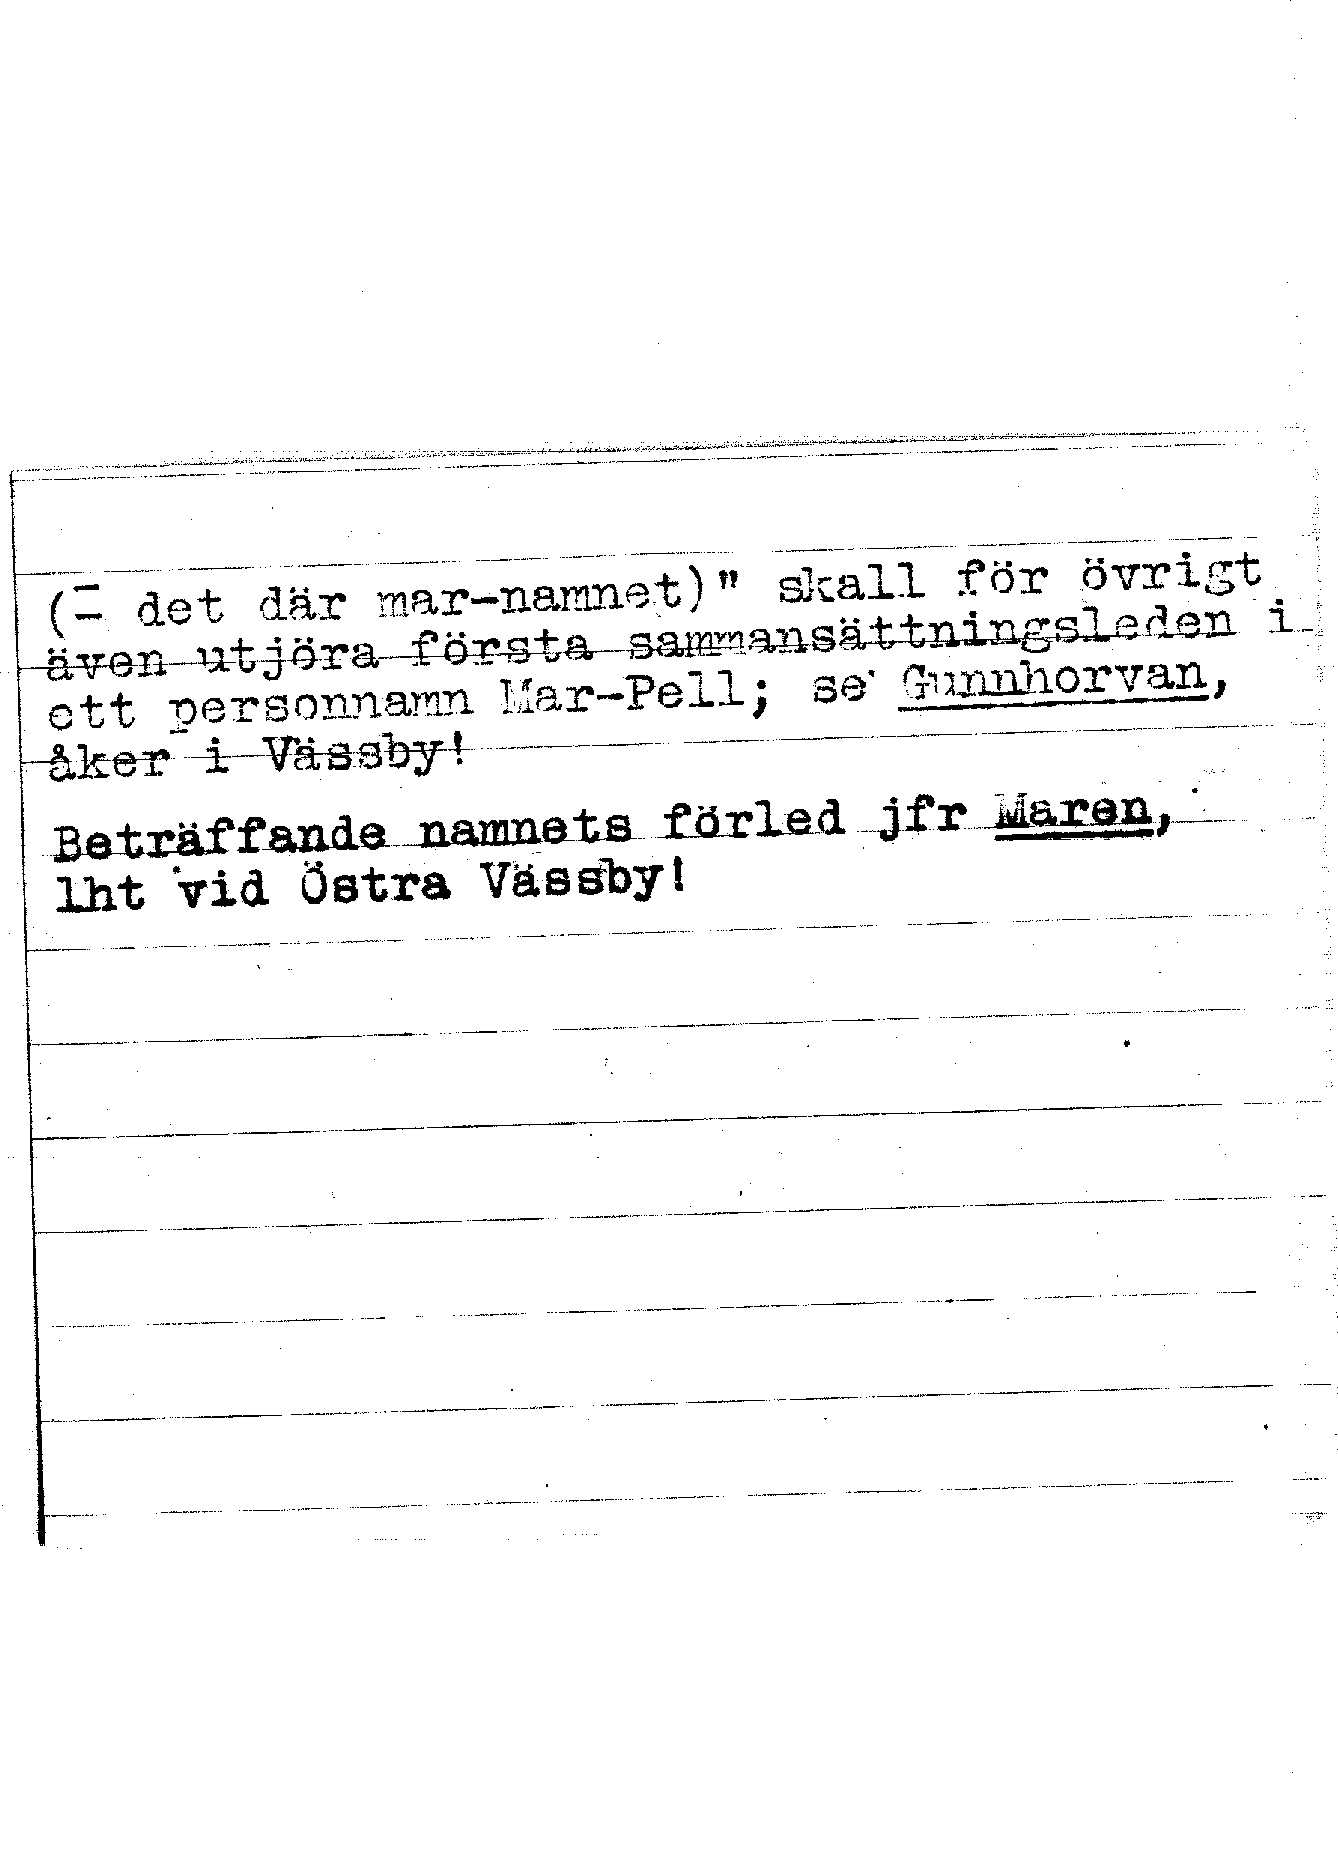 (= det där mar-namnet)" skall för övrigt
även utjöra första sammansättningsleden i
ett personnamn Mar-Pell; se Gunnhorvan,
åker i Vässby!
Beträffande namnets förled jfr Maren,
lht vid Östra Vässby!